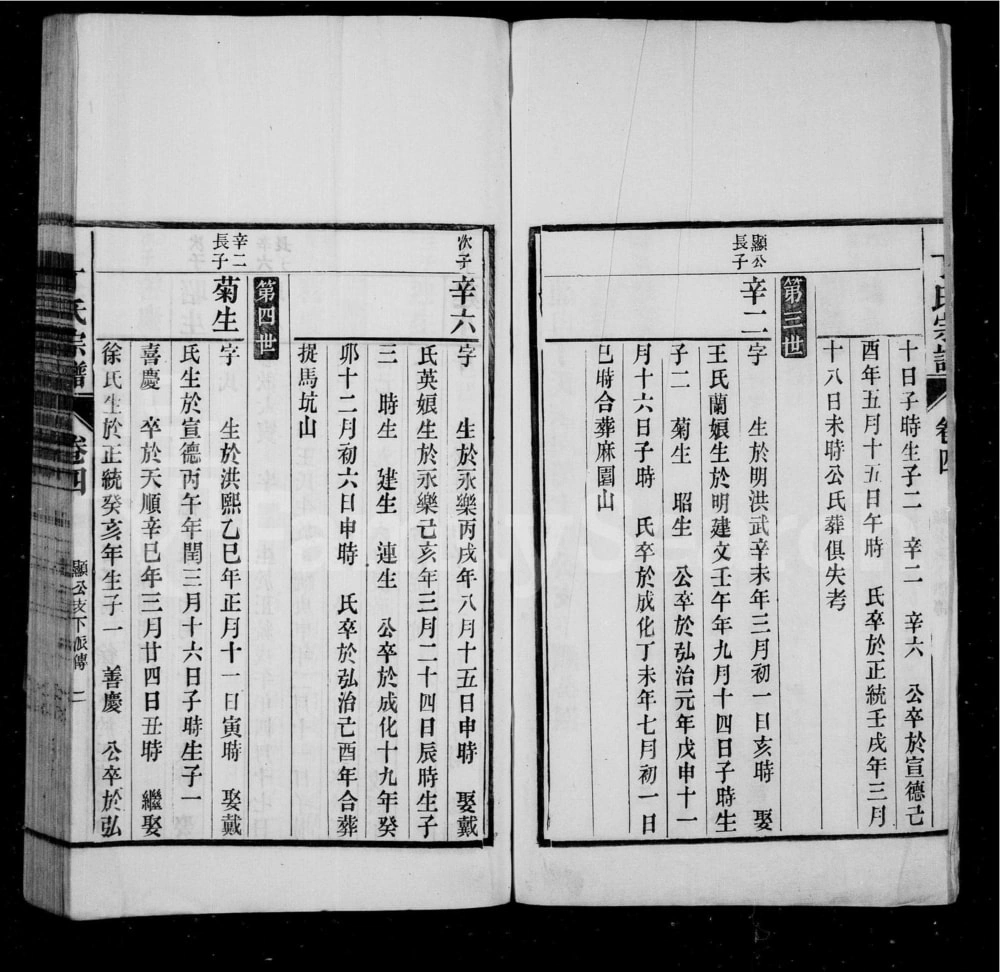 丁氏宗譜 卷四
十日子時生子二 辛二 辛六 公卒於宣德己
酉年五月十五日午時 氏卒於正統壬戌年三月
十八日未時公氏葬俱失考
第三世
顯公長子
辛二 字 生於明洪武辛未年三月初一日亥時 娶
王氏蘭娘生於明建文壬午年九月十四日子時生
子二 菊生 昭生 公卒於弘治元年戊申十一
月十六日子時 氏卒於成化丁未年七月初一日
巳時合葬麻園山
次子
辛六 字 生於永樂丙戌年八月十五日申時 娶戴
氏英娘生於永樂己亥年三月二十四日辰時生子
三 時生 建生 連生 公卒於成化十九年癸
卯十二月初六日申時 氏卒於弘治己酉年合葬
提馬坑山
第四世
辛二長子
菊生 字 生於洪熙乙巳年正月十一日寅時 娶戴
氏生於宣德丙午年閏三月十六日子時生子一
喜慶 卒於天順辛巳年三月廿四日丑時 繼娶
徐氏生於正統癸亥年生子一 善慶 公卒於弘
氏宗譜 卷四 顯公支下派傳 二